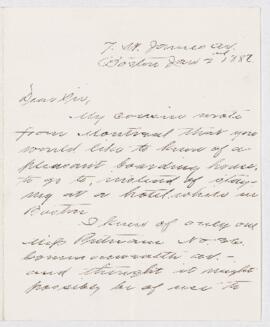 7. St. James av.
Boston Jan 2 1882
Dear Sir,
My cousin wrote
from Montreal that you
would like to know of a
pleasant boarding house
to go to, instead of stay-
ing at a hotel, while in
Boston.
I know of only one
Miss Putnam No.
Commonwealth av. -
and thought it might
possibly be of use to